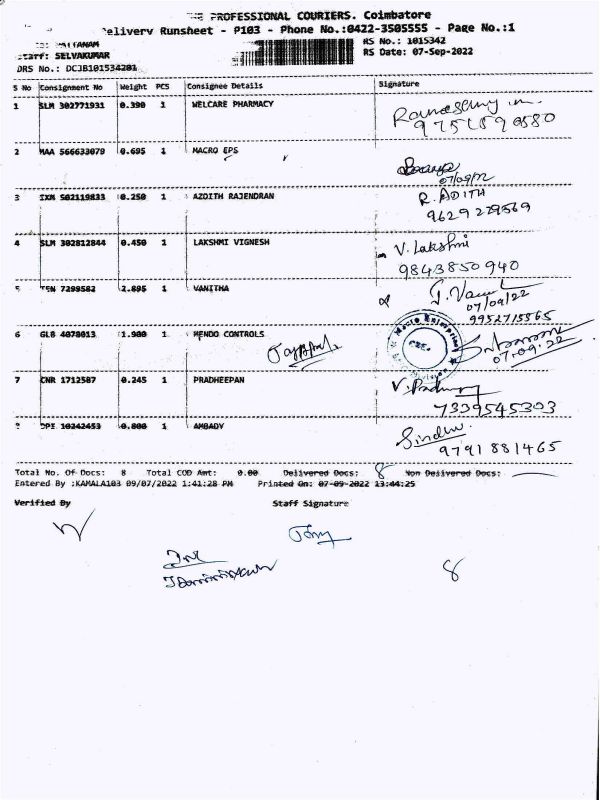 THE PROFESSIONAL COURIERS. Coimbatore
Delivery Runsheet - P103 - Phone No.:0422-3505555 - Page No.:1
RS No.: 1015342
Staff: SELVAKUMAR
RS Date: 07-Sep-2022
DRS No.: DCJB101534201
S No Consignment No Weight PCS Consignee Details Signature
1 SLM 302771931 0.390 1 WELCARE PHARMACY
2 MAA 566633079 0.695 1 MACRO EPS
07/09/22
3 IXM 502119833 0.250 1 AZOITH RAJENDRAN R. ADITH
9629279569
4 SLM 302812844 0.450 1 LAKSHMI VIGNESH V. Lakshmi
9843850940
5 TEN 7299582 2.895 1 VANITHA
07/09/22
9952715565
6 GLB 4078013 1.900 1 MENDO CONTROLS
07.09.22
7 CNR 1712507 0.245 1 PRADHEEPAN
7339545303
8 10242453 0.800 1 AMBADY Sindhu.
9791881465
Total No. Of Docs: 8 Total COD Amt: 0.00 Delivered Docs: 8 Non Delivered Docs:
Entered By :KAMALA103 09/07/2022 1:41:28 PM Printed On: 07-09-2022 13:44:25
Verified By Staff Signature
8